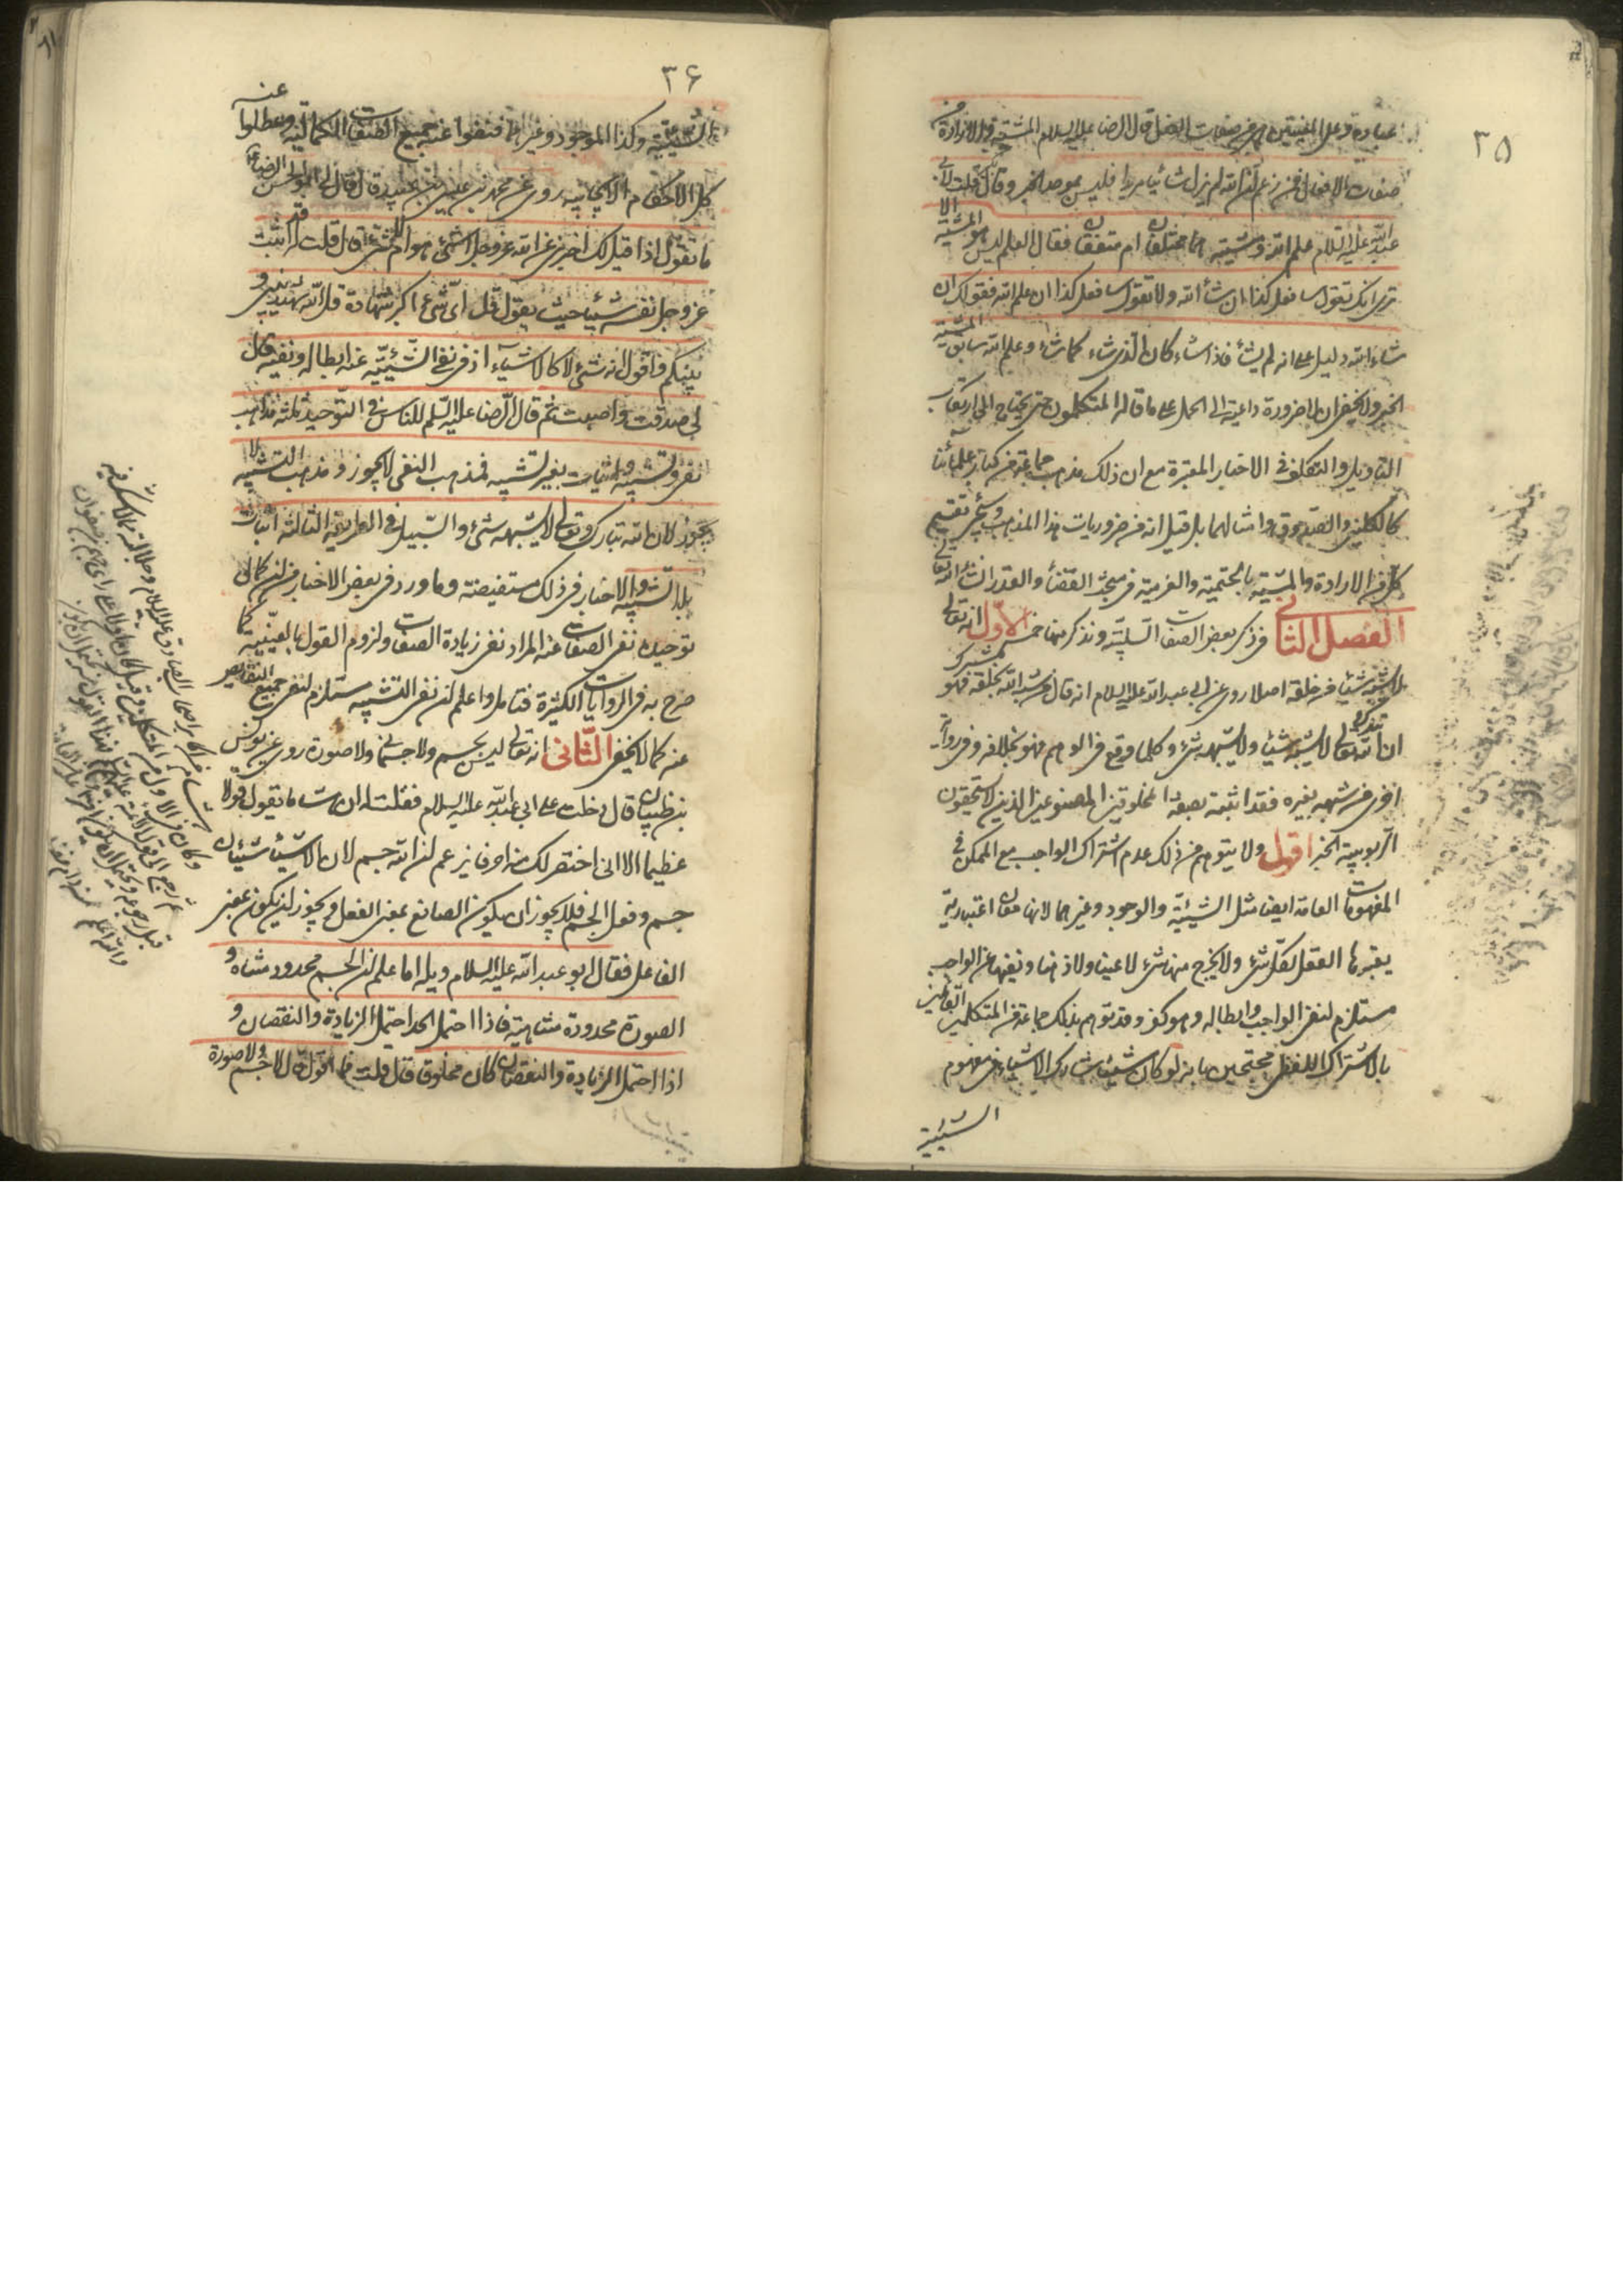 ٣٥
عبارة وعلى المعنيين فهي من صفات الفعل قال الرضا عليه السلام المشية والارادة من
صفات الافعال فمن زعم ان الله لم يزل شائيا مريدا فليس بموحد الخبر وقال قلت لابي
عبد الله عليه السلام علم الله ومشيته هما مختلفان ام متفقان فقال العلم ليس هو المشية الا
ترى انك تقول سافعل كذا ان شاء الله ولا تقول سافعل كذا ان علم الله فقولك ان
شاء الله دليل على انه لم يشأ فاذا شاء كان الذي شاء كما شاء وعلم الله سابق المشية
الخبر ولا يخفى ان لا ضرورة داعية الى الحمل على ما قاله المتكلمون حتى يحتاج الى ارتكاب
التاويل والتكلف في الاخبار المعتبرة مع ان ذلك مذهب جماعة من كبار علمائنا
كالكليني والصدوق وامثالهما بل قيل انه من ضروريات هذا المذهب وسيجيء تقسيم
كل من الارادة والمشية بالحتمية والعزمية في مبحث القضاء والقدر ان شاء الله تعالى
الفصل الثاني في ذكر بعض الصفات السلبية ونذكر منها خمسة الاول انه تعالى
لا يشبه شيئا من خلقه اصلا روي عن ابي عبد الله عليه السلام انه قال من شبه الله بخلقه فهو مشرك
ان الله تبارك وتعالى لا يشبه شيئا ولا يشبهه شيء وكلما وقع في الوهم فهو بخلافه وفي رواية
اخرى من شبهه بغيره فقد اثبته بصفة المخلوقين المصنوعين الذين لا يستحقون
الربوبية الخبر اقول ولا يتوهم من ذلك عدم اشتراك الواجب مع الممكن في
المفهومات العامة ايضا مثل الشيئية والوجود وغيرهما لانها معان اعتبارية
يعتبرها العقل لكل شيء ولا يخرج منها شيء لا عينا ولا ذهنا ونفيها عن الواجب
مستلزم لنفي الواجب وابطاله وهو كفر وقد توهم بذلك جماعة من المتكلمين القائلين
بالاشتراك اللفظي محتجين بانه لو كان شيئا شارك الاشياء في مفهوم
الشيئية
٣۶
الشيئية وكذا الموجود وغيرهما فنفوا عنه جميع الصفات الكمالية وعطلوا عنه
كل الاحكام الايجابية روي عن محمد بن عيسى بن عبيد قال قال لي ابو الحسن الرضا
ما تقول اذا قيل لك اخبرني عن الله عز وجل اشيء هو ام لا شيء قال قلت له قد اثبت
عز وجل نفسه شيئا حيث يقول قل اي شيء اكبر شهادة قل الله شهيد بيني و
بينكم فاقول انه شيء لا كالاشياء اذ في نفي الشيئية عنه ابطاله ونفيه قال
لي صدقت واصبت ثم قال الرضا عليه السلم للناس في التوحيد ثلثة مذاهب
نفي وتشبيه واثبات بغير تشبيه فمذهب النفي لا يجوز ومذهب التشبيه لا
يجوز لان الله تبارك وتعالى لا يشبهه شيء والسبيل في الطريقة الثالثة اثبات
بلا تشبيه والاخبار في ذلك مستفيضة وما ورد في بعض الاخبار من ان كمال
توحيده نفي الصفات عنه المراد نفي زيادة الصفات ولزوم القول بالعينية كما
صرح به في الروايات الكثيرة فتامل واعلم ان نفي التشبيه مستلزم لنفي جميع النقايص
عنه كما لا يخفى الثاني انه تعالى ليس بجسم ولا جسماني ولا صورة روي عن يونس
بن ظبيان قال دخلت على ابي عبد الله عليه السلام فقلت له ان هشاما يقول قولا
عظيما الا اني اختصر لك منه احرفا يزعم ان الله جسم لان الاشياء شيئان
جسم وفعل الجسم فلا يجوز ان يكون الصانع بمعنى الفعل ويجوز ان يكون بمعنى
الفاعل فقال ابو عبد الله عليه السلام ويله اما علم ان الجسم محدود متناه و
الصورة محدودة متناهية فاذا احتمل الحد احتمل الزيادة والنقصان و
اذا احتمل الزيادة والنقصان كان مخلوقا قال قلت فما اقول قال لا جسم ولا صورة